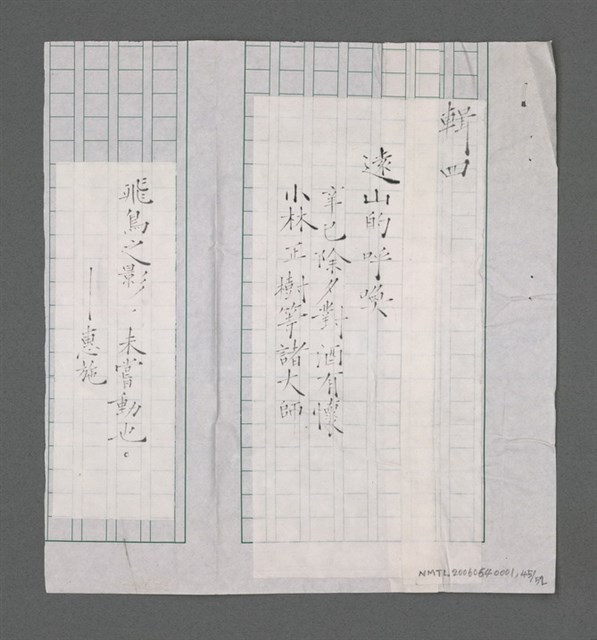 輯四
遠山的呼喚
辛巳除夕對酒有懷
小林正樹等諸大師
飛鳥之影，未嘗動也。
——惠施
NMTL20060640001,45/52